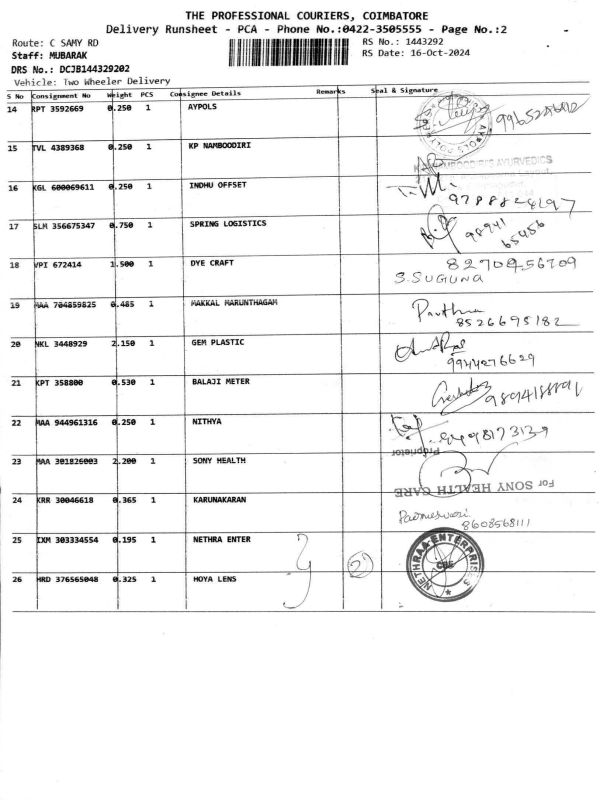 THE PROFESSIONAL COURIERS, COIMBATORE
Delivery Runsheet - PCA - Phone No.:0422-3505555 - Page No.:2
Route: C SAMY RD
RS No.: 1443292
Staff: MUBARAK
RS Date: 16-Oct-2024
DRS No.: DCJB144329202
Vehicle: Two Wheeler Delivery
S No Consignment No Weight PCS Consignee Details Remarks Seal & Signature
14 RPT 3592669 0.250 1 AYPOLS
15 TVL 4389368 0.250 1 KP NAMBOODIRI
NAMBOODIRI'S AYURVEDICS
16 KGL 600069611 0.250 1 INDHU OFFSET
9788824197
17 SLM 356675347 0.750 1 SPRING LOGISTICS
98941
65456
18 VPI 672414 1.500 1 DYE CRAFT 82709 56709
S. SUGUNA
19 MAA 704859825 0.485 1 MAKKAL MARUNTHAGAM
8526695182
20 NKL 3448929 2.150 1 GEM PLASTIC
9944276629
21 KPT 358800 0.530 1 BALAJI METER
22 MAA 944961316 0.250 1 NITHYA
Proprietor
23 MAA 301826003 2.200 1 SONY HEALTH
For SONY HEALTH CARE
24 KRR 30046618 0.365 1 KARUNAKARAN
Parmeshwari
8608568111
25 IXM 303334554 0.195 1 NETHRA ENTER
NETHRAA ENTERPRISES
CBE
26 HRD 376565048 0.325 1 HOYA LENS